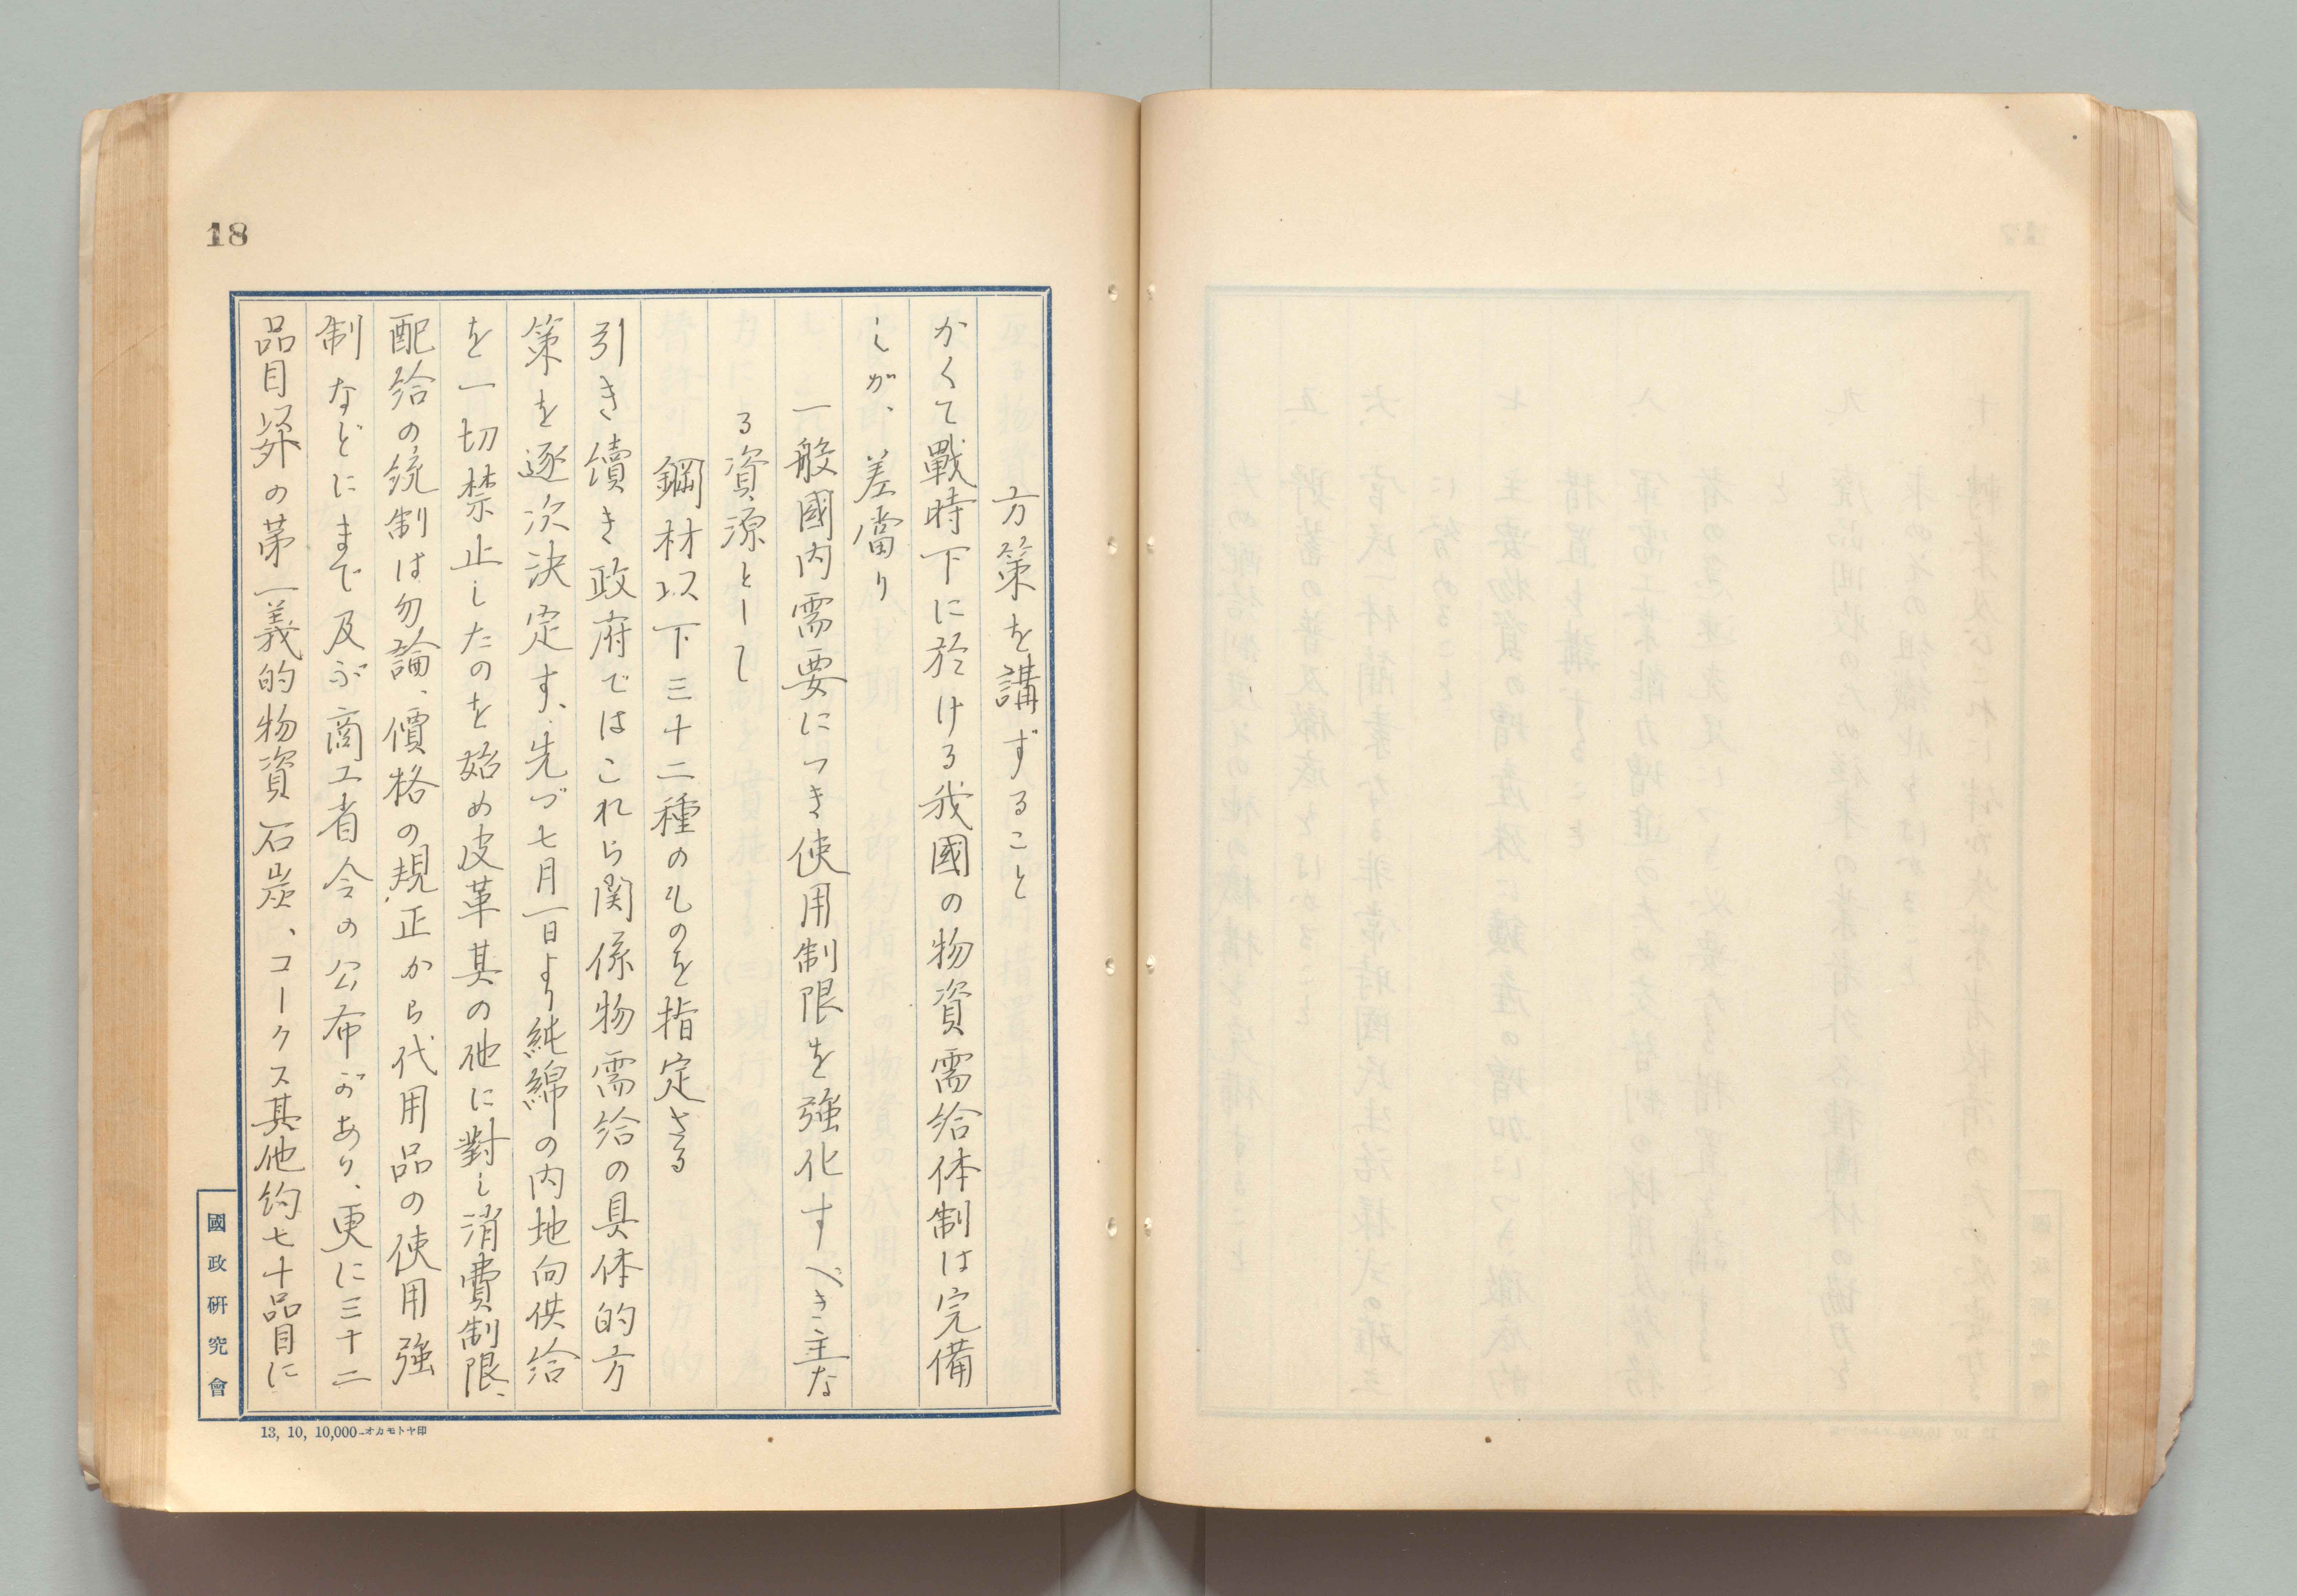 18
方策を講ずること
かくて戰時下に於ける我國の物資需給体制は完備
しが、差當り
一般國内需要につき使用制限を強化すべき主な
る資源として
鋼材以下三十二種のものを指定さる
引き續き政府ではこれら関係物需給の具体的方
策を逐次決定す、先づ七月一日より純綿の内地向供給
を一切禁止したのを始め皮革其の他に對し消費制限、
配給の統制は勿論、價格の規正から代用品の使用強
制などにまで及ぶ商工省令の公布があり、更に三十二
品目以外の第一義的物資石炭、コークス其他約七十品目に
國政硏究會
13, 10, 10,000—オカモトヤ印